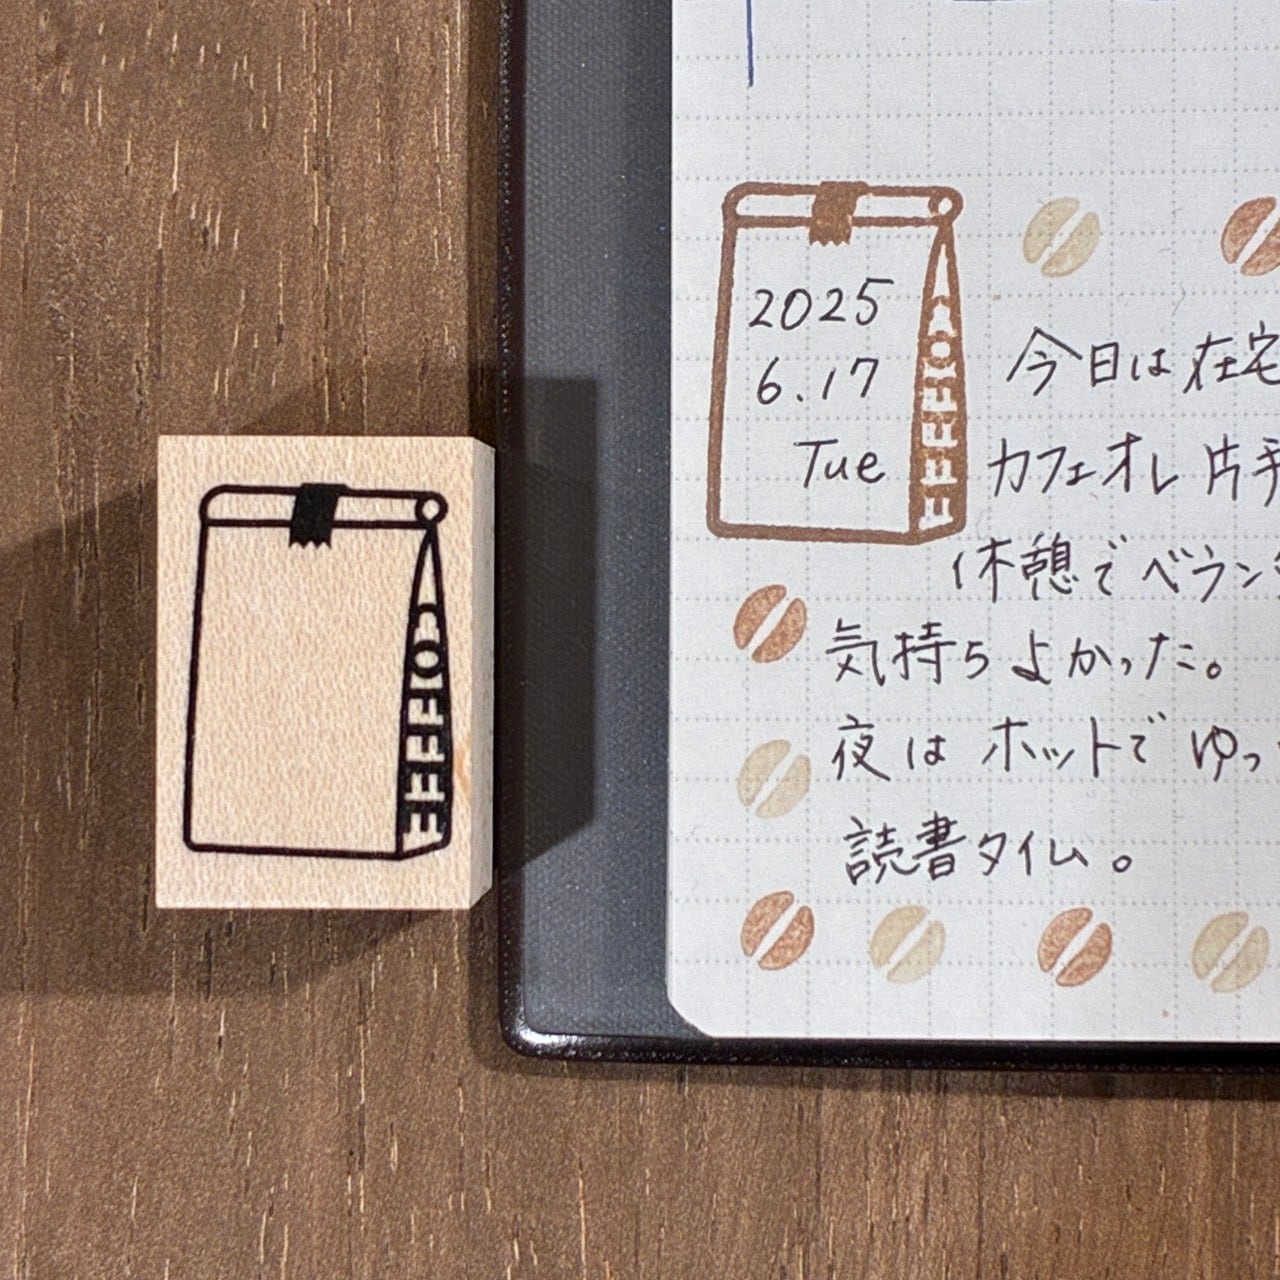 COFFEE
2025
6.17
Tue
COFFEE
今日は在宅
カフェオレ片手
休憩でベラン
気持ちよかった。
夜はホットでゆっ
読書タイム。